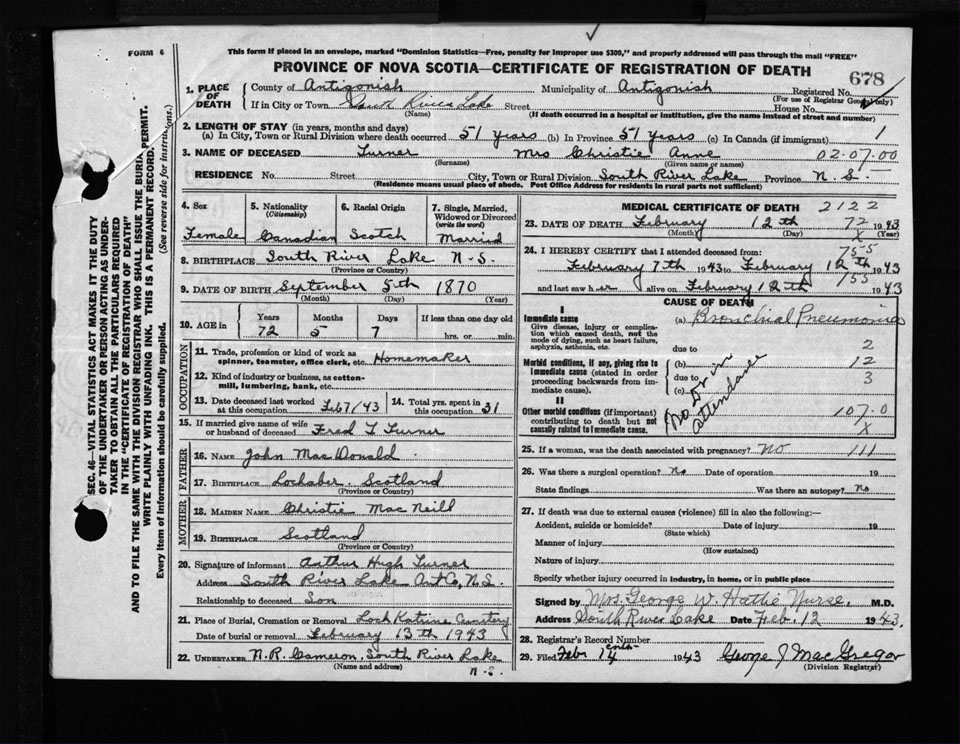 FORM 6
This form if placed in an envelope, marked "Dominion Statistics—Free, penalty for improper use $300," and properly addressed will pass through the mail "FREE"
PROVINCE OF NOVA SCOTIA—CERTIFICATE OF REGISTRATION OF DEATH
678
1. PLACE OF DEATH
County of Antigonish Municipality of Antigonish Registered No.
(For use of Registrar General only)
If in City or Town South River Lake Street House No.
(Name) (If death occurred in a hospital or institution, give the name instead of street and number)
2. LENGTH OF STAY (in years, months and days)
(a) In City, Town or Rural Division where death occurred 51 years (b) In Province 51 years (c) In Canada (if immigrant) 1
3. NAME OF DECEASED Turner Mrs Christie Anne 02-07-00
(Surname) (Given name or names)
RESIDENCE No. Street City, Town or Rural Division South River Lake Province N.S.
(Residence means usual place of abode. Post Office Address for residents in rural parts not sufficient)
4. Sex
Female
5. Nationality
(Citizenship)
Canadian
6. Racial Origin
Scotch
7. Single, Married, Widowed or Divorced
(write the word)
Married
8. BIRTHPLACE South River Lake N.S.
(Province or Country)
9. DATE OF BIRTH September 5th 1870
(Month) (Day) (Year)
10. AGE in
Years Months Days If less than one day old
72 5 7 hrs. or min.
OCCUPATION
11. Trade, profession or kind of work as spinner, teamster, office clerk, etc. Homemaker
12. Kind of industry or business, as cotton-mill, lumbering, bank, etc.
13. Date deceased last worked at this occupation Feb7/43
14. Total yrs. spent in this occupation 31
15. If married give name of wife or husband of deceased Fred T Turner
FATHER
16. NAME John MacDonald
17. BIRTHPLACE Lochaber Scotland
(Province or Country)
MOTHER
18. MAIDEN NAME Christie MacNeill
19. BIRTHPLACE Scotland
(Province or Country)
20. Signature of informant Arthur Hugh Turner
Address South River Lake Ant Co, N.S.
Relationship to deceased Son
21. Place of Burial, Cremation or Removal Loch Katrine Cemetery
Date of burial or removal February 13th 1943
22. UNDERTAKER N.R. Cameron, South River Lake
(Name and address) N-S.
MEDICAL CERTIFICATE OF DEATH 2122
23. DATE OF DEATH February 12th 72 1943
(Month) (Day) X (Year)
24. I HEREBY CERTIFY that I attended deceased from: 755
February 7th 1943 to February 12th 1943
and last saw her alive on February 12th 755 1943
CAUSE OF DEATH
I
Immediate cause (a) Bronchial Pneumonia
Give disease, injury or complication which caused death, not the mode of dying, such as heart failure, asphyxia, asthenia, etc.
due to 2
Morbid conditions, if any, giving rise to immediate cause (stated in order proceeding backwards from immediate cause).
(b) 12
due to 3
(c)
no Dr in attendance
II
Other morbid conditions (if important) contributing to death but not causally related to immediate cause. 107.0
X
25. If a woman, was the death associated with pregnancy? No 111
26. Was there a surgical operation? No Date of operation 19
State findings Was there an autopsy? No
27. If death was due to external causes (violence) fill in also the following:—
Accident, suicide or homicide? Date of injury 19
(State which)
Manner of injury
(How sustained)
Nature of injury
Specify whether injury occurred in industry, in home, or in public place
Signed by Mrs. George W. Hattie Nurse. M.D.
Address South River Lake Date Feb. 12 1943.
28. Registrar's Record Number
29. Filed Feb. 14 1943 George J MacGregor
(Division Registrar)
SEC. 46—VITAL STATISTICS ACT MAKES IT THE DUTY
OF THE UNDERTAKER OR PERSON ACTING AS UNDER-
TAKER TO OBTAIN ALL THE PARTICULARS REQUIRED
IN THE "CERTIFICATE OF REGISTRATION OF DEATH"
AND TO FILE THE SAME WITH THE DIVISION REGISTRAR WHO SHALL ISSUE THE BURIAL PERMIT.
WRITE PLAINLY WITH UNFADING INK. THIS IS A PERMANENT RECORD.
Every item of information should be carefully supplied. (See reverse side for instructions.)